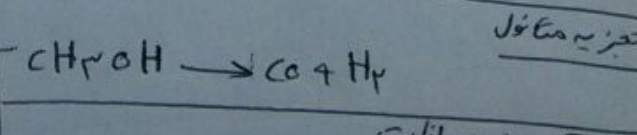 تجزیه متانول
CH۳OH → CO + H۲